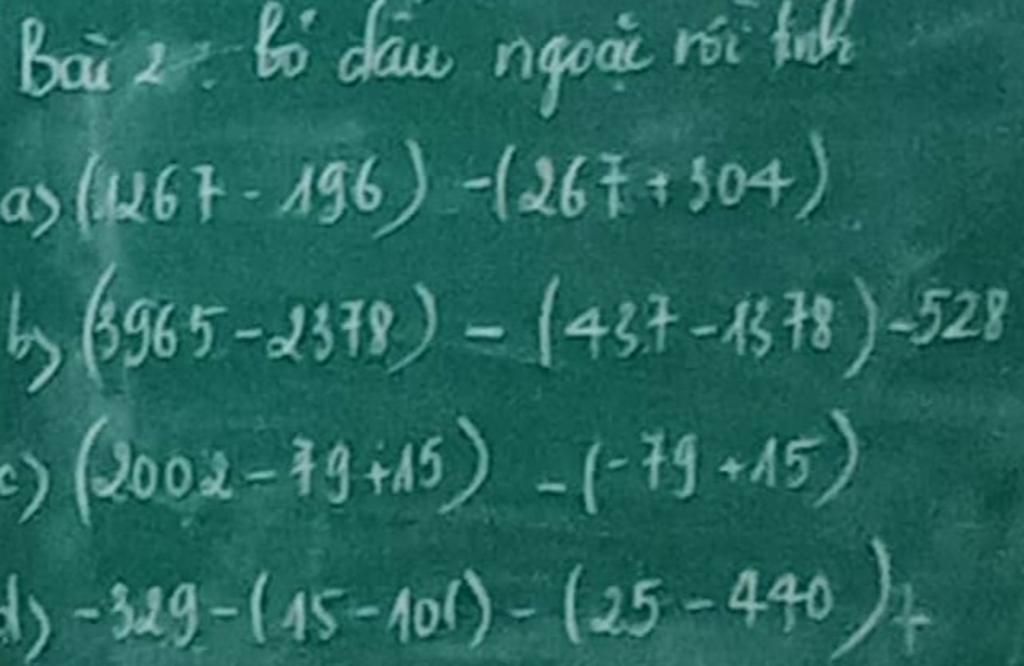 Bài 2: bỏ dấu ngoặc rồi tính
a) (1267 - 196) - (267 + 304)
b) (3965 - 2378) - (437 - 1378) - 528
c) (2002 - 79 + 15) - (-79 + 15)
d) -329 - (15 - 101) - (25 - 440) +